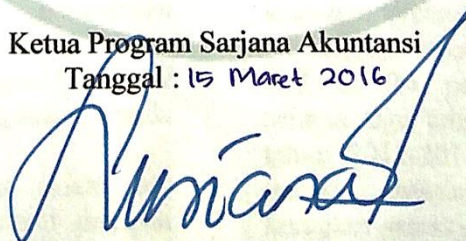 Ketua Program Sarjana Akuntansi
Tanggal : 15 Maret 2016